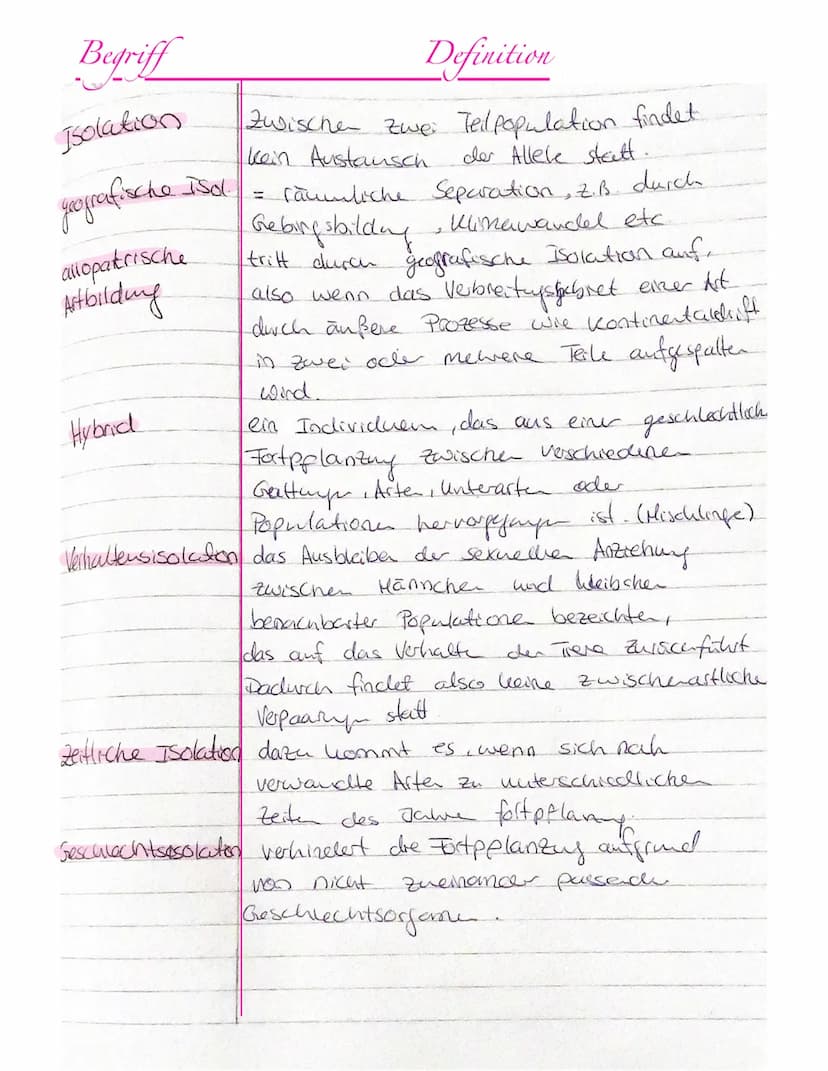 Begriff Definition
Isolation Zwischen zwei Teilpopulation findet
kein Austausch der Allele statt.
geografische Isol. = räumliche Separation, z.B. durch
Gebirgsbildung, Klimawandel etc
allopatrische tritt durch geografische Isolation auf,
Artbildung also wenn das Verbreitungsgebiet einer Art
durch äußere Prozesse wie Kontinentaldrift
in zwei oder mehrere Teile aufgespalten
wird.
Hybrid ein Individuum, das aus einer geschlechtlich
Fortpflanzung zwischen verschiedene
Gattungen, Arten, Unterarten oder
Populationen hervorgegangen ist. (Mischlinge)
Verhaltensisolation das Ausbleiben der sexuellen Anziehung
zwischen Männchen und Weibchen
benachbarter Populationen bezeichten,
das auf das Verhalten der Tiere zurückführt
Dadurch findet also keine zwischenartliche
Verpaarungen statt
zeitliche Isolation dazu kommt es, wenn sich nah
verwandte Arten zu unterschiedlichen
Zeiten des Jahres fortpflanzen.
Geschlechtsisolation verhindert die Fortpflanzung aufgrund
von nicht zueinander passenden
Geschlechtsorganen.